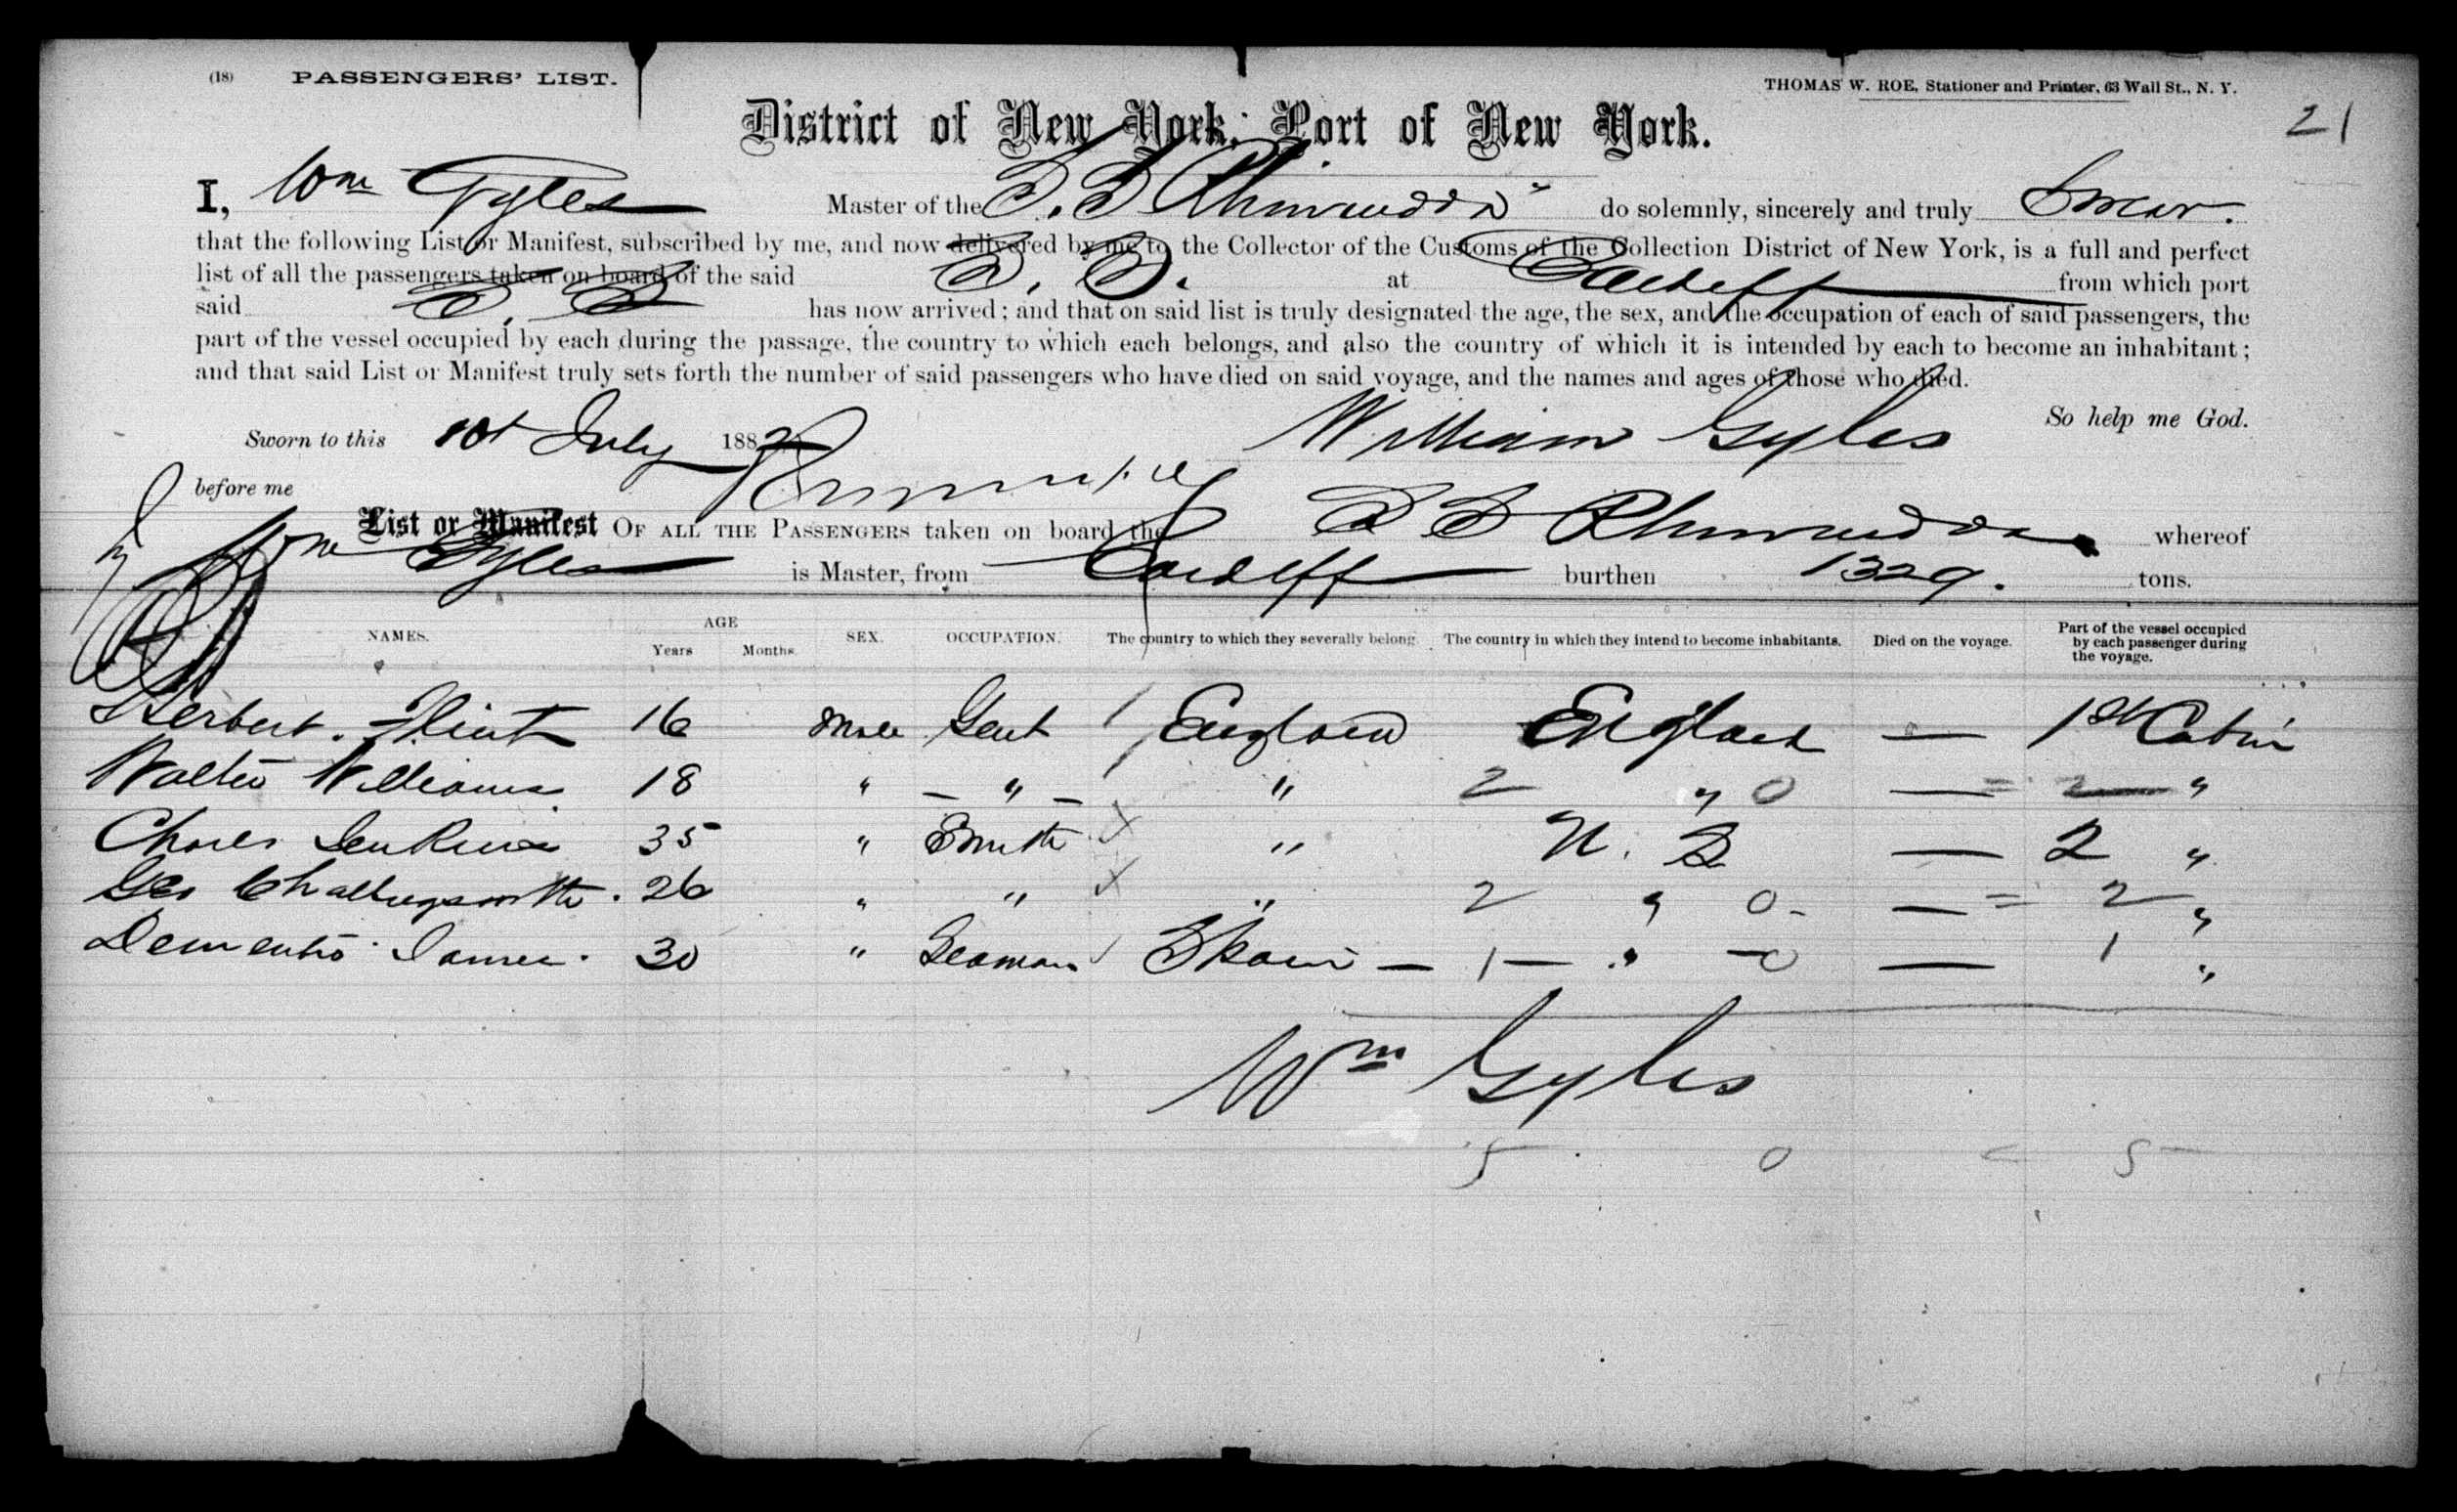 (18) PASSENGERS' LIST.
THOMAS W. ROE, Stationer and Printer, 63 Wall St., N. Y.
21
District of New York, Port of New York.
I, Wm Gyles Master of the S.S. do solemnly, sincerely and truly Swear.
that the following List or Manifest, subscribed by me, and now delivered by me to the Collector of the Customs of the Collection District of New York, is a full and perfect
list of all the passengers taken on board of the said S. S. at Cardiff from which port
said S. S. has now arrived; and that on said list is truly designated the age, the sex, and the occupation of each of said passengers, the
part of the vessel occupied by each during the passage, the country to which each belongs, and also the country of which it is intended by each to become an inhabitant;
and that said List or Manifest truly sets forth the number of said passengers who have died on said voyage, and the names and ages of those who died.
So help me God.
Sworn to this July 1882 William Gyles
before me
List or Manifest OF ALL THE PASSENGERS taken on board the S S whereof
Wm Gyles is Master, from Cardiff burthen 1329. tons.
NAMES. AGE Years Months. SEX. OCCUPATION. The country to which they severally belong. The country in which they intend to become inhabitants. Died on the voyage. Part of the vessel occupied by each passenger during the voyage.
Herbert Flint 16 Male Gent England England — 1st Cabin
Walter Williams 18 " — " — " 2 " 0 — = 2 "
Charles Jenkins 35 " Smith " U. S — 2 "
Geo 26 " " " 2 " 0 — = 2 "
James 30 " Seaman Spain — 1 — " — 0 — 1 "
Wm Gyles
5 0 5